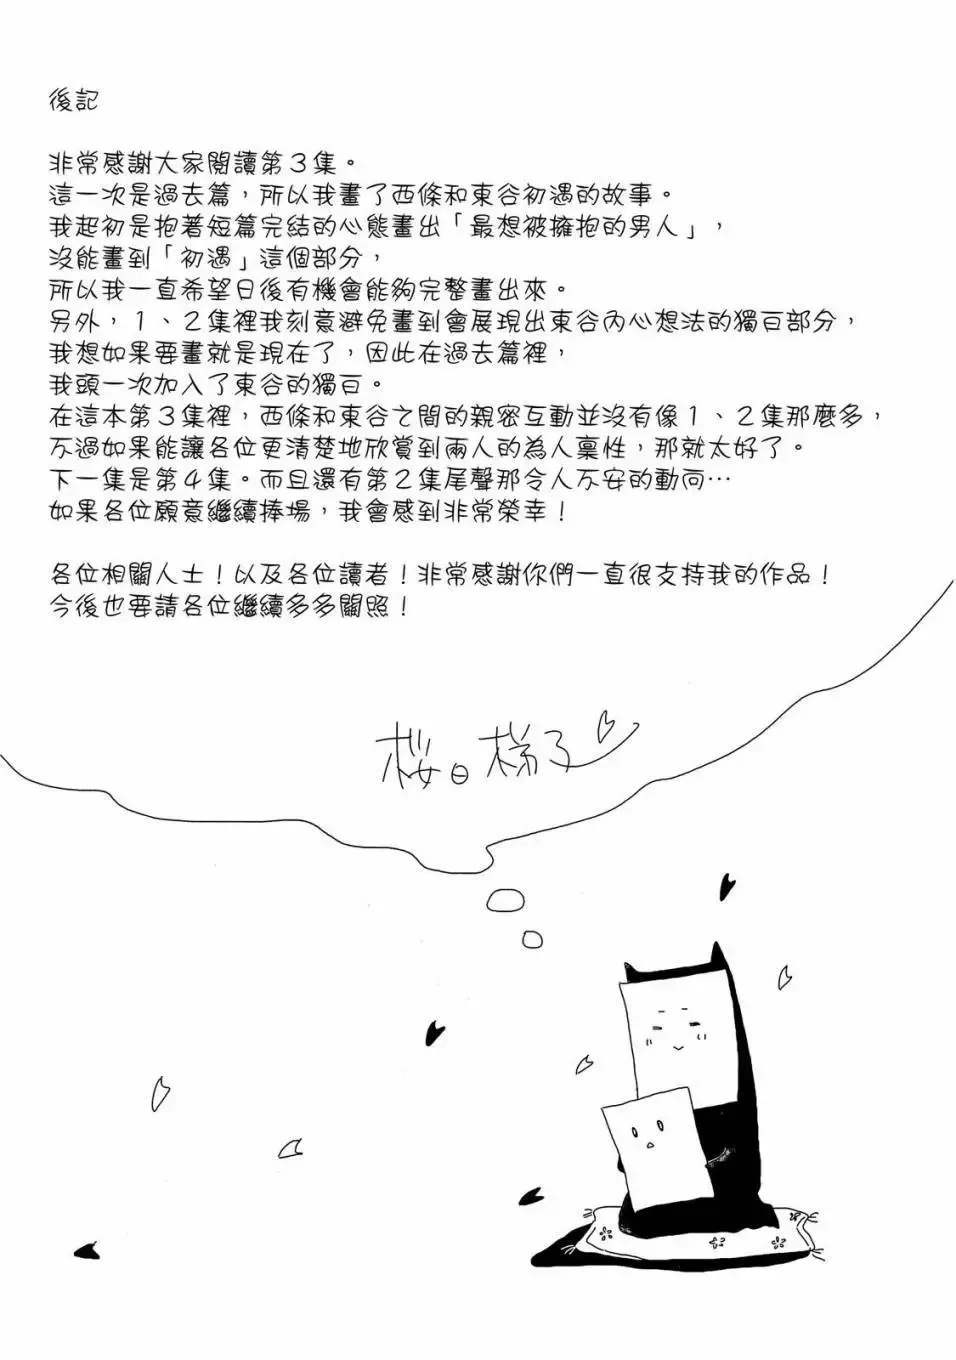 後記
非常感謝大家閱讀第３集。
這一次是過去篇，所以我畫了西條和東谷初遇的故事。
我起初是抱著短篇完結的心態畫出「最想被擁抱的男人」，
沒能畫到「初遇」這個部分，
所以我一直希望日後有機會能夠完整畫出來。
另外，１、２集裡我刻意避免畫到會展現出東谷內心想法的獨白部分，
我想如果要畫就是現在了，因此在過去篇裡，
我頭一次加入了東谷的獨白。
在這本第３集裡，西條和東谷之間的親密互動並沒有像１、２集那麼多，
不過如果能讓各位更清楚地欣賞到兩人的為人稟性，那就太好了。
下一集是第４集。而且還有第２集尾聲那令人不安的動向…
如果各位願意繼續捧場，我會感到非常榮幸！
各位相關人士！以及各位讀者！非常感謝你們一直很支持我的作品！
今後也要請各位繼續多多關照！
桜日梯子